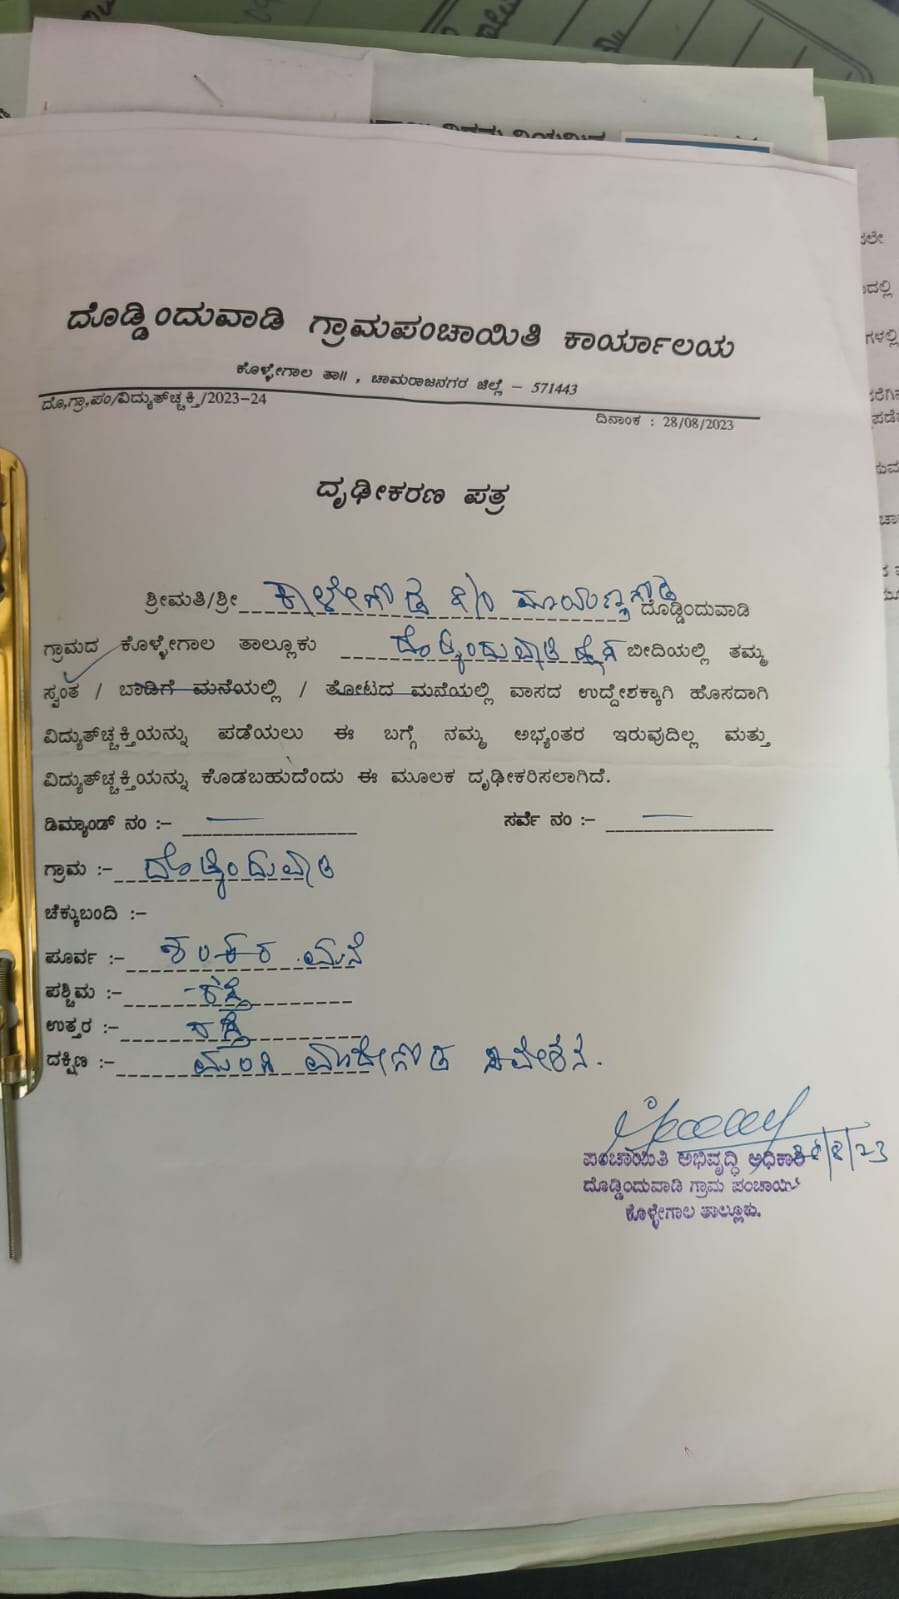 ದೊಡ್ಡಿಂದುವಾಡಿ ಗ್ರಾಮಪಂಚಾಯಿತಿ ಕಾರ್ಯಾಲಯ
ಕೊಳ್ಳೇಗಾಲ ತಾ॥ , ಚಾಮರಾಜನಗರ ಜಿಲ್ಲೆ – 571443
ದೊ,ಗ್ರಾ,ಪಂ/ವಿದ್ಯುತ್‌ಚ್ಚಕ್ತಿ/2023-24
ದಿನಾಂಕ : 28/08/2023
ದೃಢೀಕರಣ ಪತ್ರ
ಶ್ರೀಮತಿ/ಶ್ರೀ ಕಾಳೇಗೌಡ S/o ಮಾಯಣ್ಣಗೌಡ ದೊಡ್ಡಿಂದುವಾಡಿ
ಗ್ರಾಮದ ಕೊಳ್ಳೇಗಾಲ ತಾಲ್ಲೂಕು ದೊಡ್ಡಿಂದುವಾಡಿ ಬೀದಿಯಲ್ಲಿ ತಮ್ಮ
ಸ್ವಂತ / ಬಾಡಿಗೆ ಮನೆಯಲ್ಲಿ / ತೋಟದ ಮನೆಯಲ್ಲಿ ವಾಸದ ಉದ್ದೇಶಕ್ಕಾಗಿ ಹೊಸದಾಗಿ
ವಿದ್ಯುತ್‌ಚ್ಚಕ್ತಿಯನ್ನು ಪಡೆಯಲು ಈ ಬಗ್ಗೆ ನಮ್ಮ ಅಭ್ಯಂತರ ಇರುವುದಿಲ್ಲ ಮತ್ತು
ವಿದ್ಯುತ್‌ಚ್ಚಕ್ತಿಯನ್ನು ಕೊಡಬಹುದೆಂದು ಈ ಮೂಲಕ ದೃಢೀಕರಿಸಲಾಗಿದೆ.
ಡಿಮ್ಯಾಂಡ್ ನಂ :- — ಸರ್ವೆ ನಂ :- —
ಗ್ರಾಮ :- ದೊಡ್ಡಿಂದುವಾಡಿ
ಚೆಕ್ಕುಬಂದಿ :-
ಪೂರ್ವ :- ಶಂಕರ ಮನೆ
ಪಶ್ಚಿಮ :- ರಸ್ತೆ
ಉತ್ತರ :- ರಸ್ತೆ
ದಕ್ಷಿಣ :- ಮಾದೇಗೌಡ ನಿವೇಶನ.
28/8/23
ಪಂಚಾಯಿತಿ ಅಭಿವೃದ್ಧಿ ಅಧಿಕಾರಿ
ದೊಡ್ಡಿಂದುವಾಡಿ ಗ್ರಾಮ ಪಂಚಾಯಿತಿ
ಕೊಳ್ಳೇಗಾಲ ತಾಲ್ಲೂಕು.